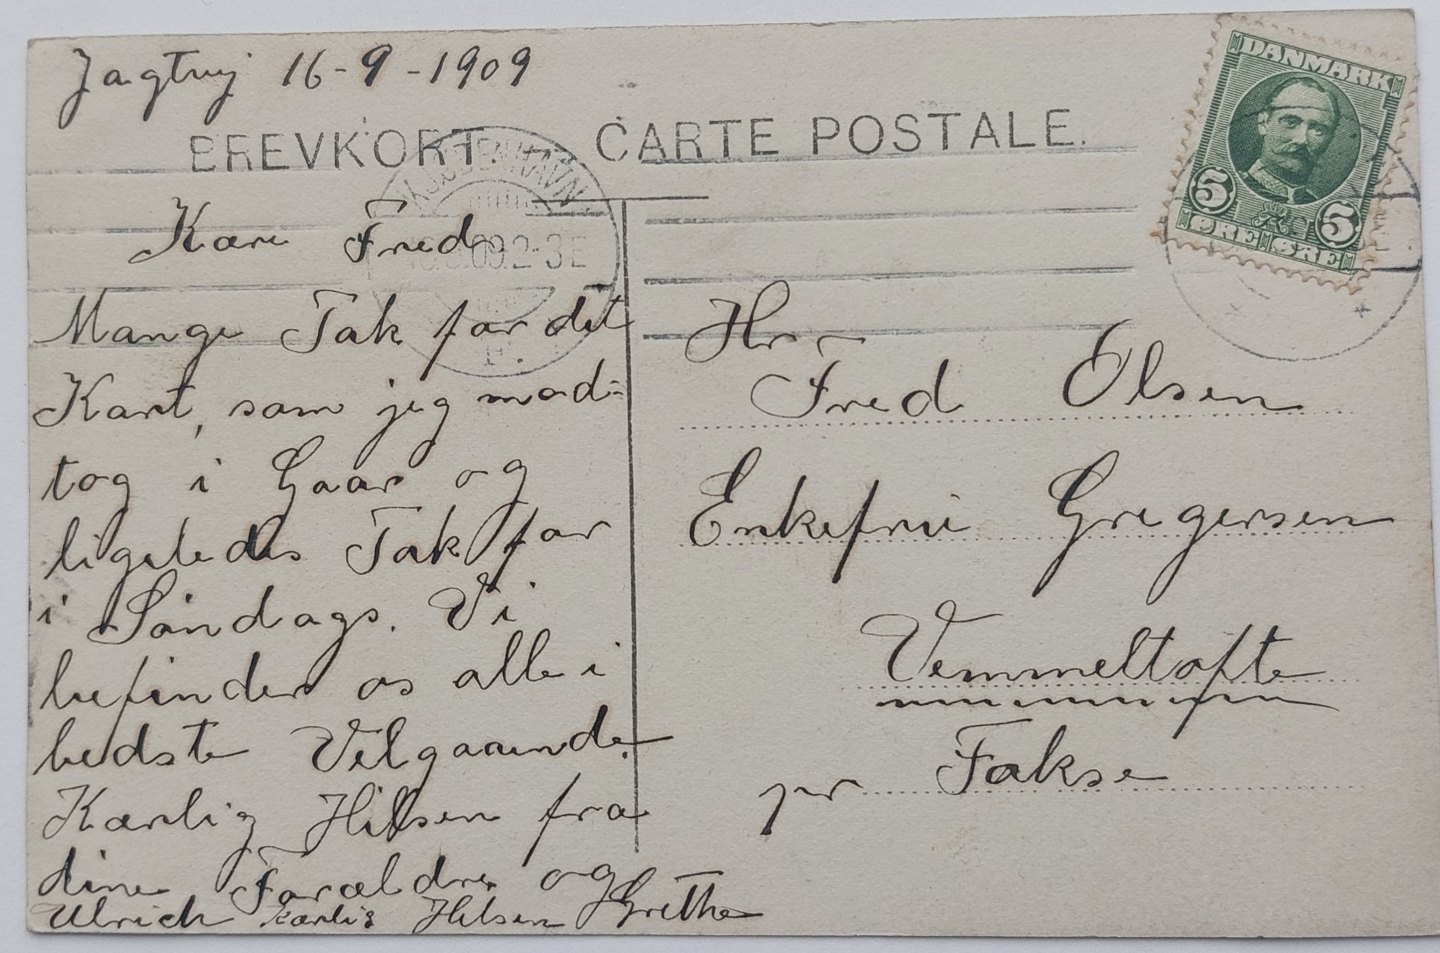 Jagtvej 16-9-1909
BREVKORT. — CARTE POSTALE.
DANMARK
5 5
ØRE ØRE
KJØBENHAVN
09.2-3E
F.
Kære Fred
Mange Tak for det
Kort, som jeg mod=
tog i Gaar og
ligeledes Tak for
i Søndags. Vi
befinder os alle i
bedste Velgaaende.
Kærlig Hilsen fra
dine Forældre og
Ulrich kærlig Hilsen Grethe
Hr
Fred Olsen
Enkefru Gregersen
Vemmeltofte
pr Fakse